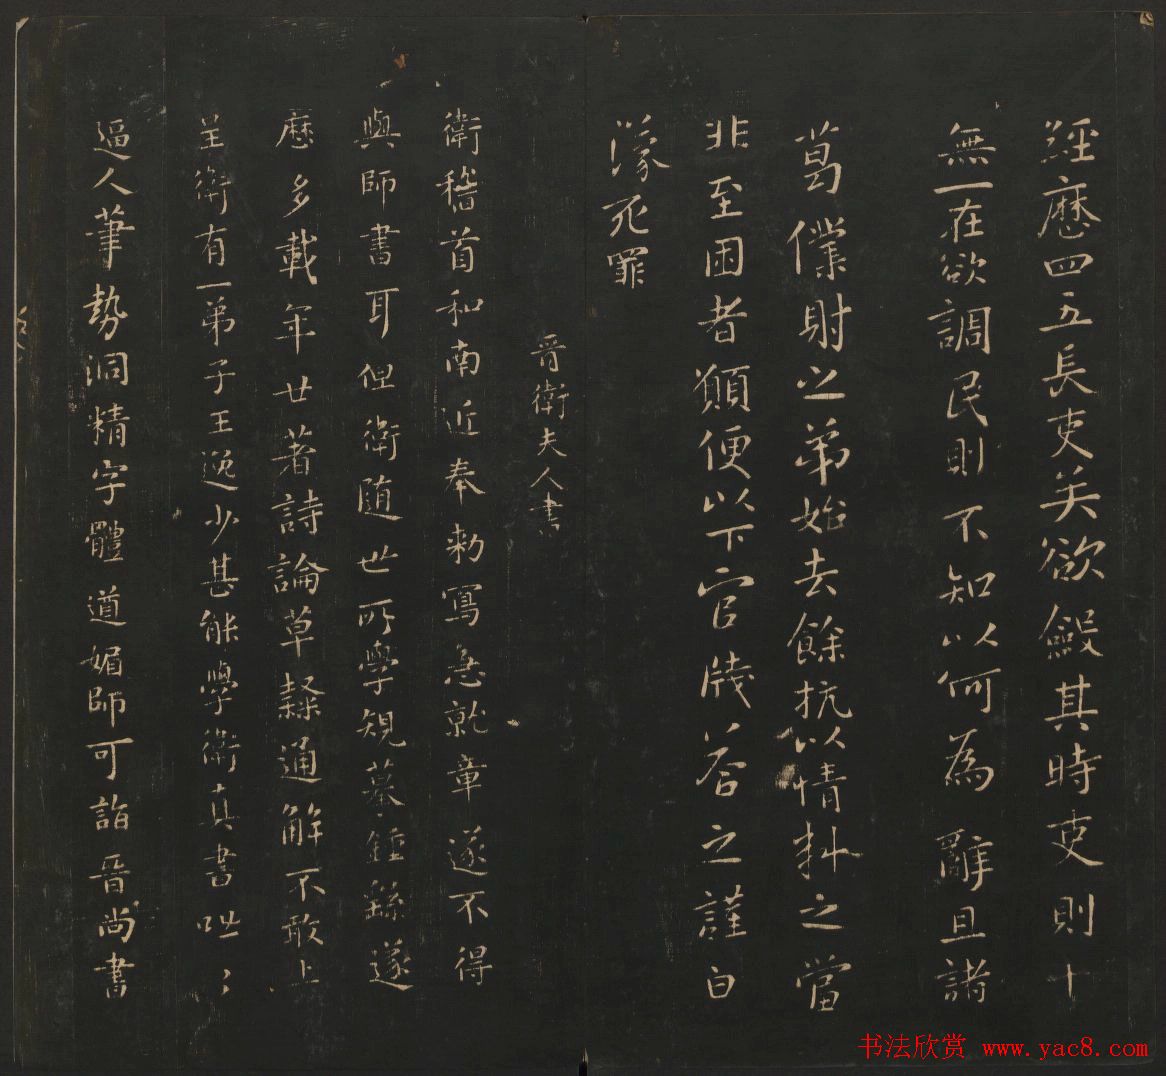 經歷四五長吏矣欲斂其時吏則十
無一在欲調民則不知以何為辭且諸
葛僕射之弟始去餘杭以情料之當
非至困者願便以下官牋荅之謹白
濛死罪
晉衛夫人書
衛稽首和南近奉勑寫急就章遂不得
與師書耳但衛隨世所學規摹鍾繇遂
歷多載年廿著詩論草隸通解不敢上
呈衛有一弟子王逸少甚能學衛真書咄〻
逼人筆勢洞精字體遒媚師可詣晉尚書
书法欣赏 www.yac8.com